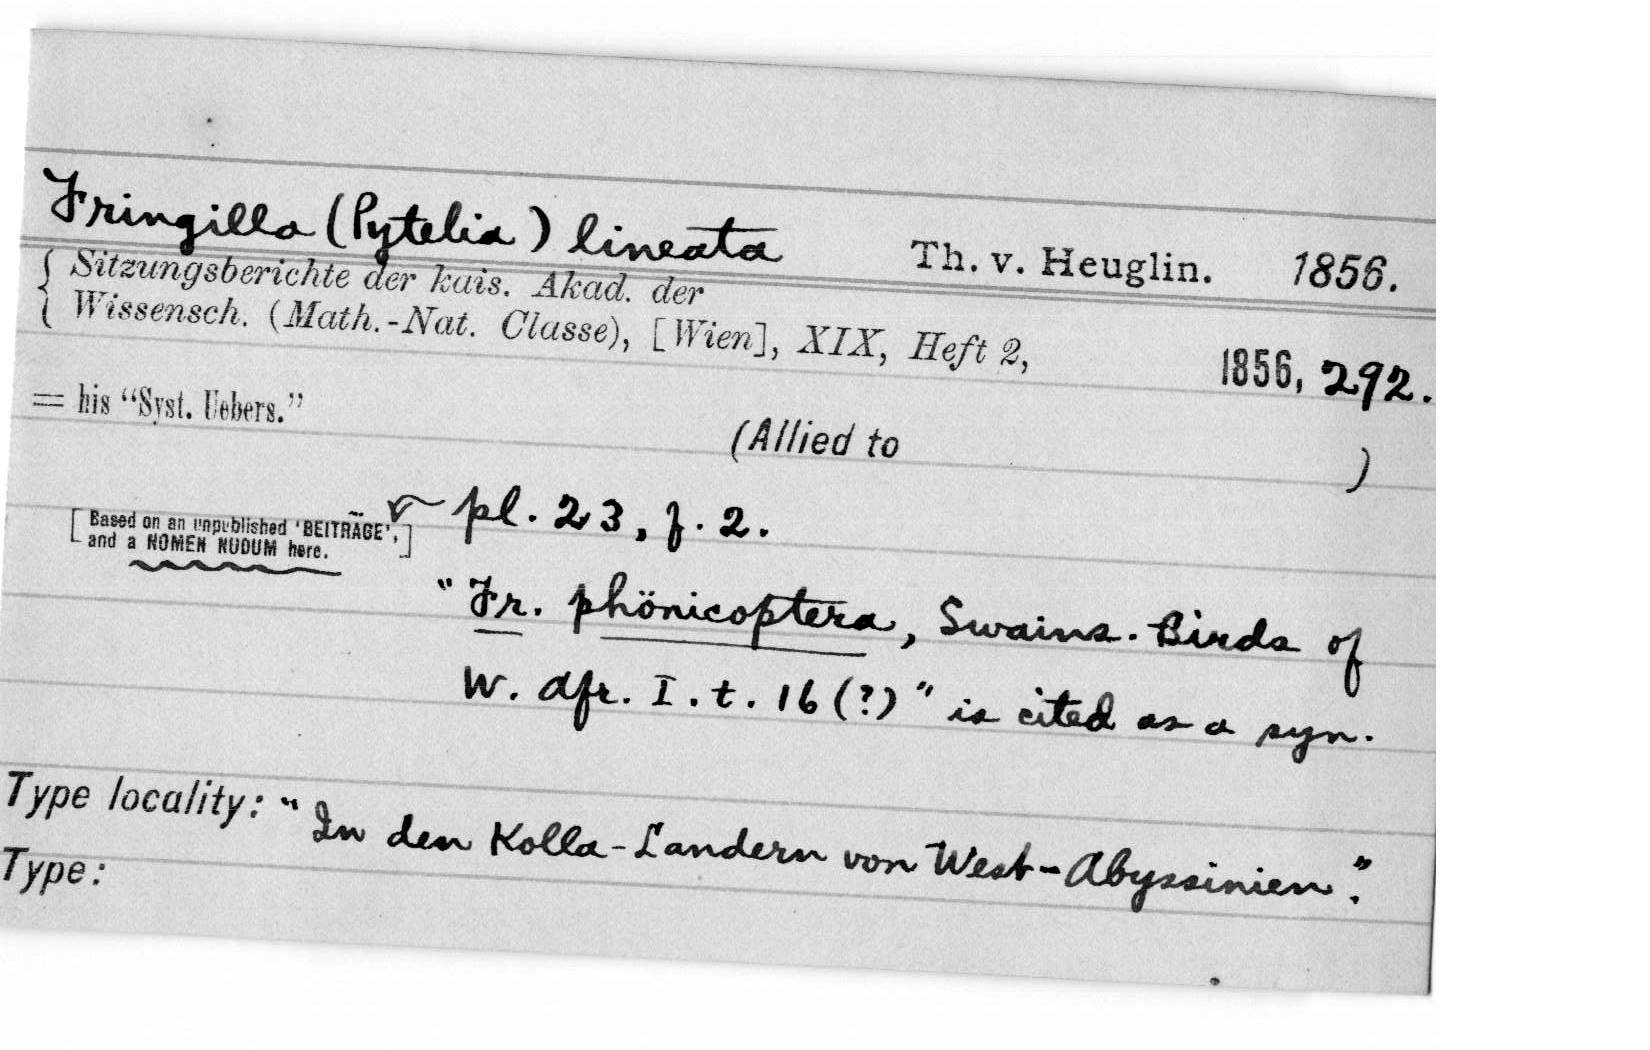 Fringilla (Pytelia) lineata Th. v. Heuglin. 1856.
{ Sitzungsberichte der kais. Akad. der
Wissensch. (Math.-Nat. Classe), [Wien], XIX, Heft 2, 1856, 292.
= his “Syst. Uebers.”
(Allied to )
pl. 23, f. 2.
[Based on an unpublished 'BEITRÄGE',
and a NOMEN NUDUM here.]
"Fr. phönicoptera, Swains. Birds of
W. Afr. I. t. 16 (?)" is cited as a syn.
Type locality: "In den Kolla-Landern von West-Abyssinien".
Type: